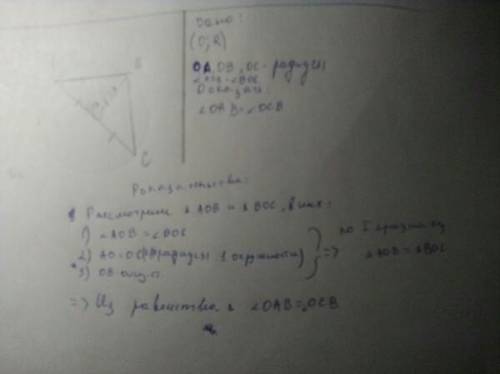 Дано:
(O; R)
OA, OB, OC - радиусы
∠AOB = ∠BOC
Доказать:
∠OAB = ∠OCB
B
C
Доказательство:
Рассмотрим ∆ AOB и ∆ BOC, в них:
1) ∠AOB = ∠BOC
2) AO = OC (радиусы 1 окружности)
3) OB общ.
} => по I признаку
∆AOB = ∆BOC
=> Из равенства ∆ ∠OAB = ∠OCB